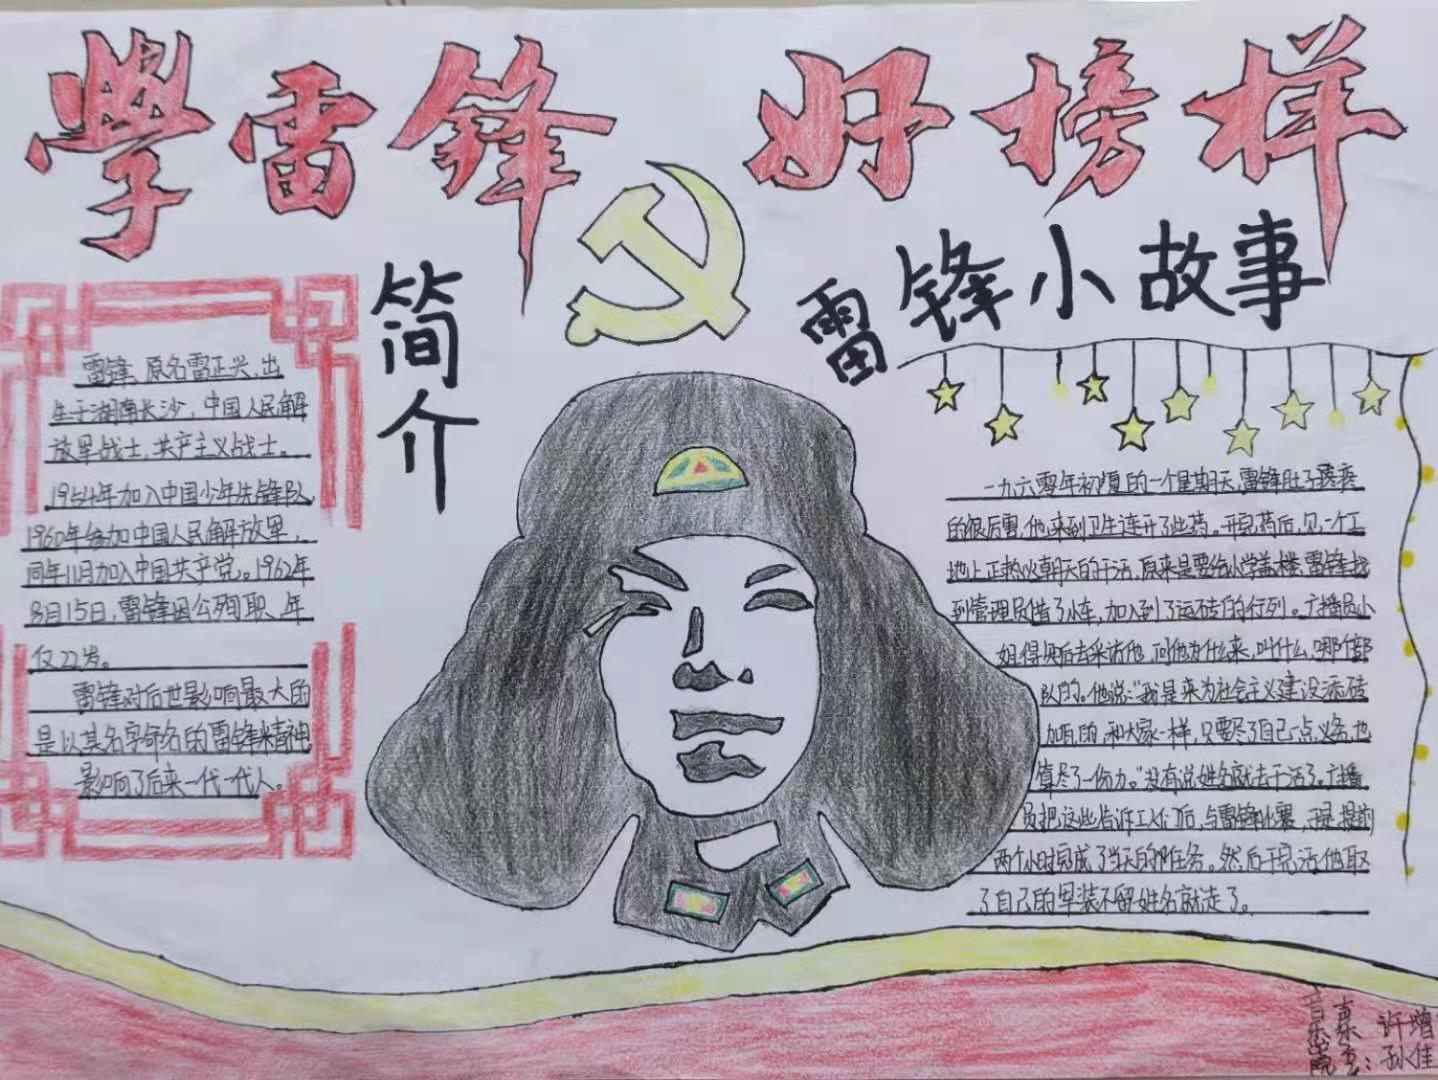 學雷锋 好榜样
简介
雷锋小故事
雷锋,原名雷正兴,出
生于湖南长沙,中国人民解
放军战士,共产主义战士。
1954年加入中国少年先锋队,
1960年参加中国人民解放军,
同年11月加入中国共产党。1962年
8月15日,雷锋因公殉职,年
仅22岁。
雷锋对后世影响最大的
是以其名字命名的雷锋精神
影响了后来一代一代人。
一九六零年初夏的一个星期天,雷锋肚子疼
的很厉害,他来到卫生连开了些药。开完药后,见一个工
地上正热火朝天的干活,原来是要给小学盖楼,雷锋找
到管理员借了小车,加入到了运砖的行列。广播员小
姐得知后去采访他,问他为什么来,叫什么,哪个部
队的。他说:“我是来为社会主义建设添砖
加瓦的,和大家一样,只需尽了自己一点义务,也
算尽了一份力。”没有说姓名就去干活了。广播
员把这些告诉工人们后,与雷锋比赛,于是提前
两个小时完成了当天的任务。然后干完活他取
了自己的军装不留姓名就走了。
音乐学院
许增
孙佳